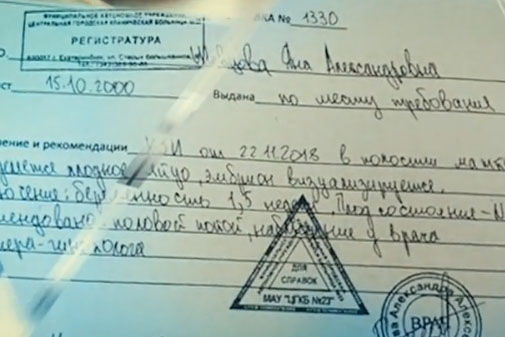 МУНИЦИПАЛЬНОЕ АВТОНОМНОЕ УЧРЕЖДЕНИЕ
ЦЕНТРАЛЬНАЯ ГОРОДСКАЯ КЛИНИЧЕСКАЯ БОЛЬНИЦА
РЕГИСТРАТУРА
ВКА № 1330
620017 г. Екатеринбург, ул. Старых Большевиков
Яна Александровна
15.10.2000 Выдана по месту требования
ение и рекомендации УЗИ от 22.11.2018 в полости матк
плодное яйцо, эмбрион визуализируется.
ючение: беременность 1,5 недел Плод состояние - N
мендовано: половой покой, наблюдение у врача
шера-гинеколога
ДЛЯ
СПРАВОК
МАУ "ЦГКБ №23"
ва Александра Алексе
ВРАЧ